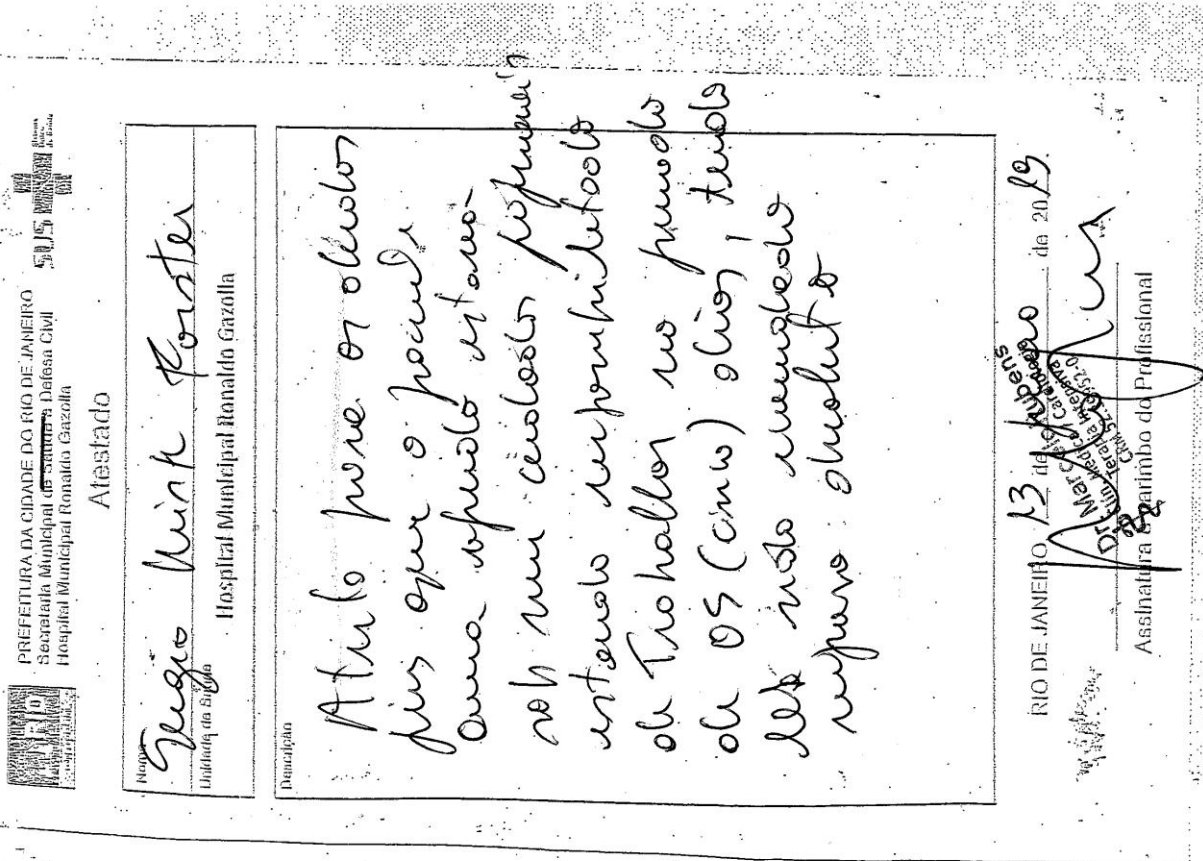 PREFEITURA DA CIDADE DO RIO DE JANEIRO
Secretaria Municipal de Saúde e Defesa Civil
Hospital Municipal Ronaldo Gazolla
SUS
Atestado
Nome
Sergio Forster
Unidade de Saúde
Hospital Municipal Ronaldo Gazolla
Descrição
Atesto para os devidos
fins que o paciente
acima referido
sob meus cuidados profissionais
estando impossibilitado
de Trabalhar no período
de 05 (cinco) dias, tendo
sido recomendado
repouso absoluto
RIO DE JANEIRO, 13 de da 2019.
Dr. Marcelo Rubens
Clín. Médica / Cardiologia
Terapia Intensiva
Assinatura e Carimbo do Profissional